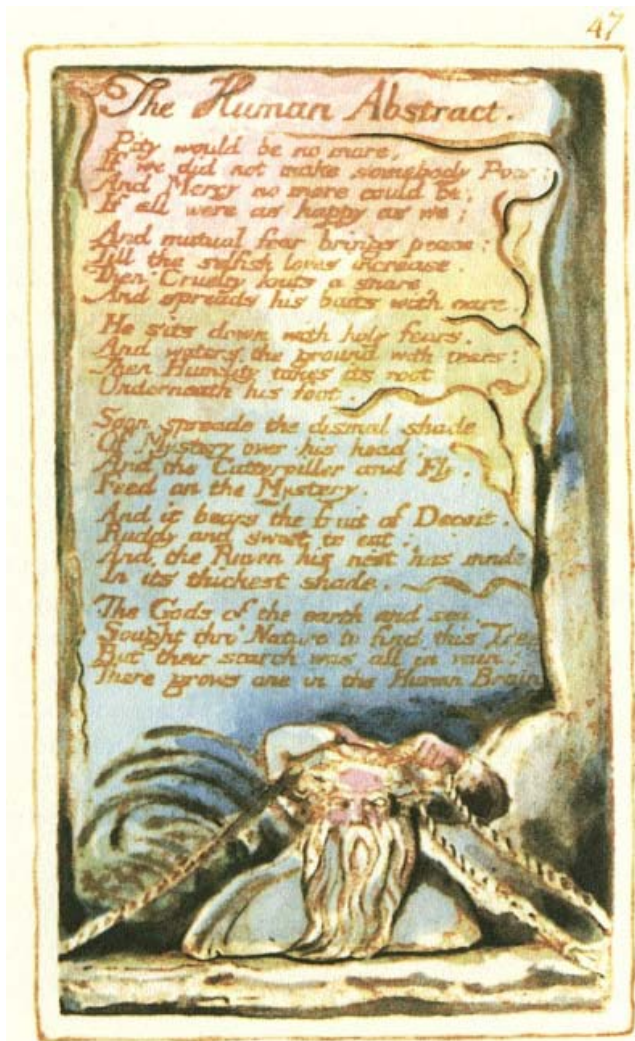 47
The Human Abstract.
Pity would be no more,
If we did not make somebody Poor:
And Mercy no more could be,
If all were as happy as we;
And mutual fear brings peace:
Till the selfish loves increase.
Then Cruelty knits a snare,
And spreads his baits with care.
He sits down with holy fears,
And waters the ground with tears:
Then Humility takes its root
Underneath his foot.
Soon spreads the dismal shade
Of Mystery over his head;
And the Catterpiller and Fly,
Feed on the Mystery.
And it bears the fruit of Deceit,
Ruddy and sweet to eat;
And the Raven his nest has made
In its thickest shade.
The Gods of the earth and sea,
Sought thro' Nature to find this Tree
But their search was all in vain:
There grows one in the Human Brain